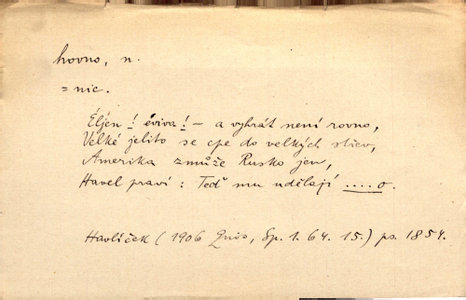 hovno, n.
= nic.
Éljen! éviva! – a vyhrát není rovno,
Velké jelito se cpe do velkých střev,
Amerika zmůže Rusko jen,
Havel praví: Teď mu udělají ....o.
Havlíček (1906 Quis, Sp. 1. 64. 15.) ps. 1854.